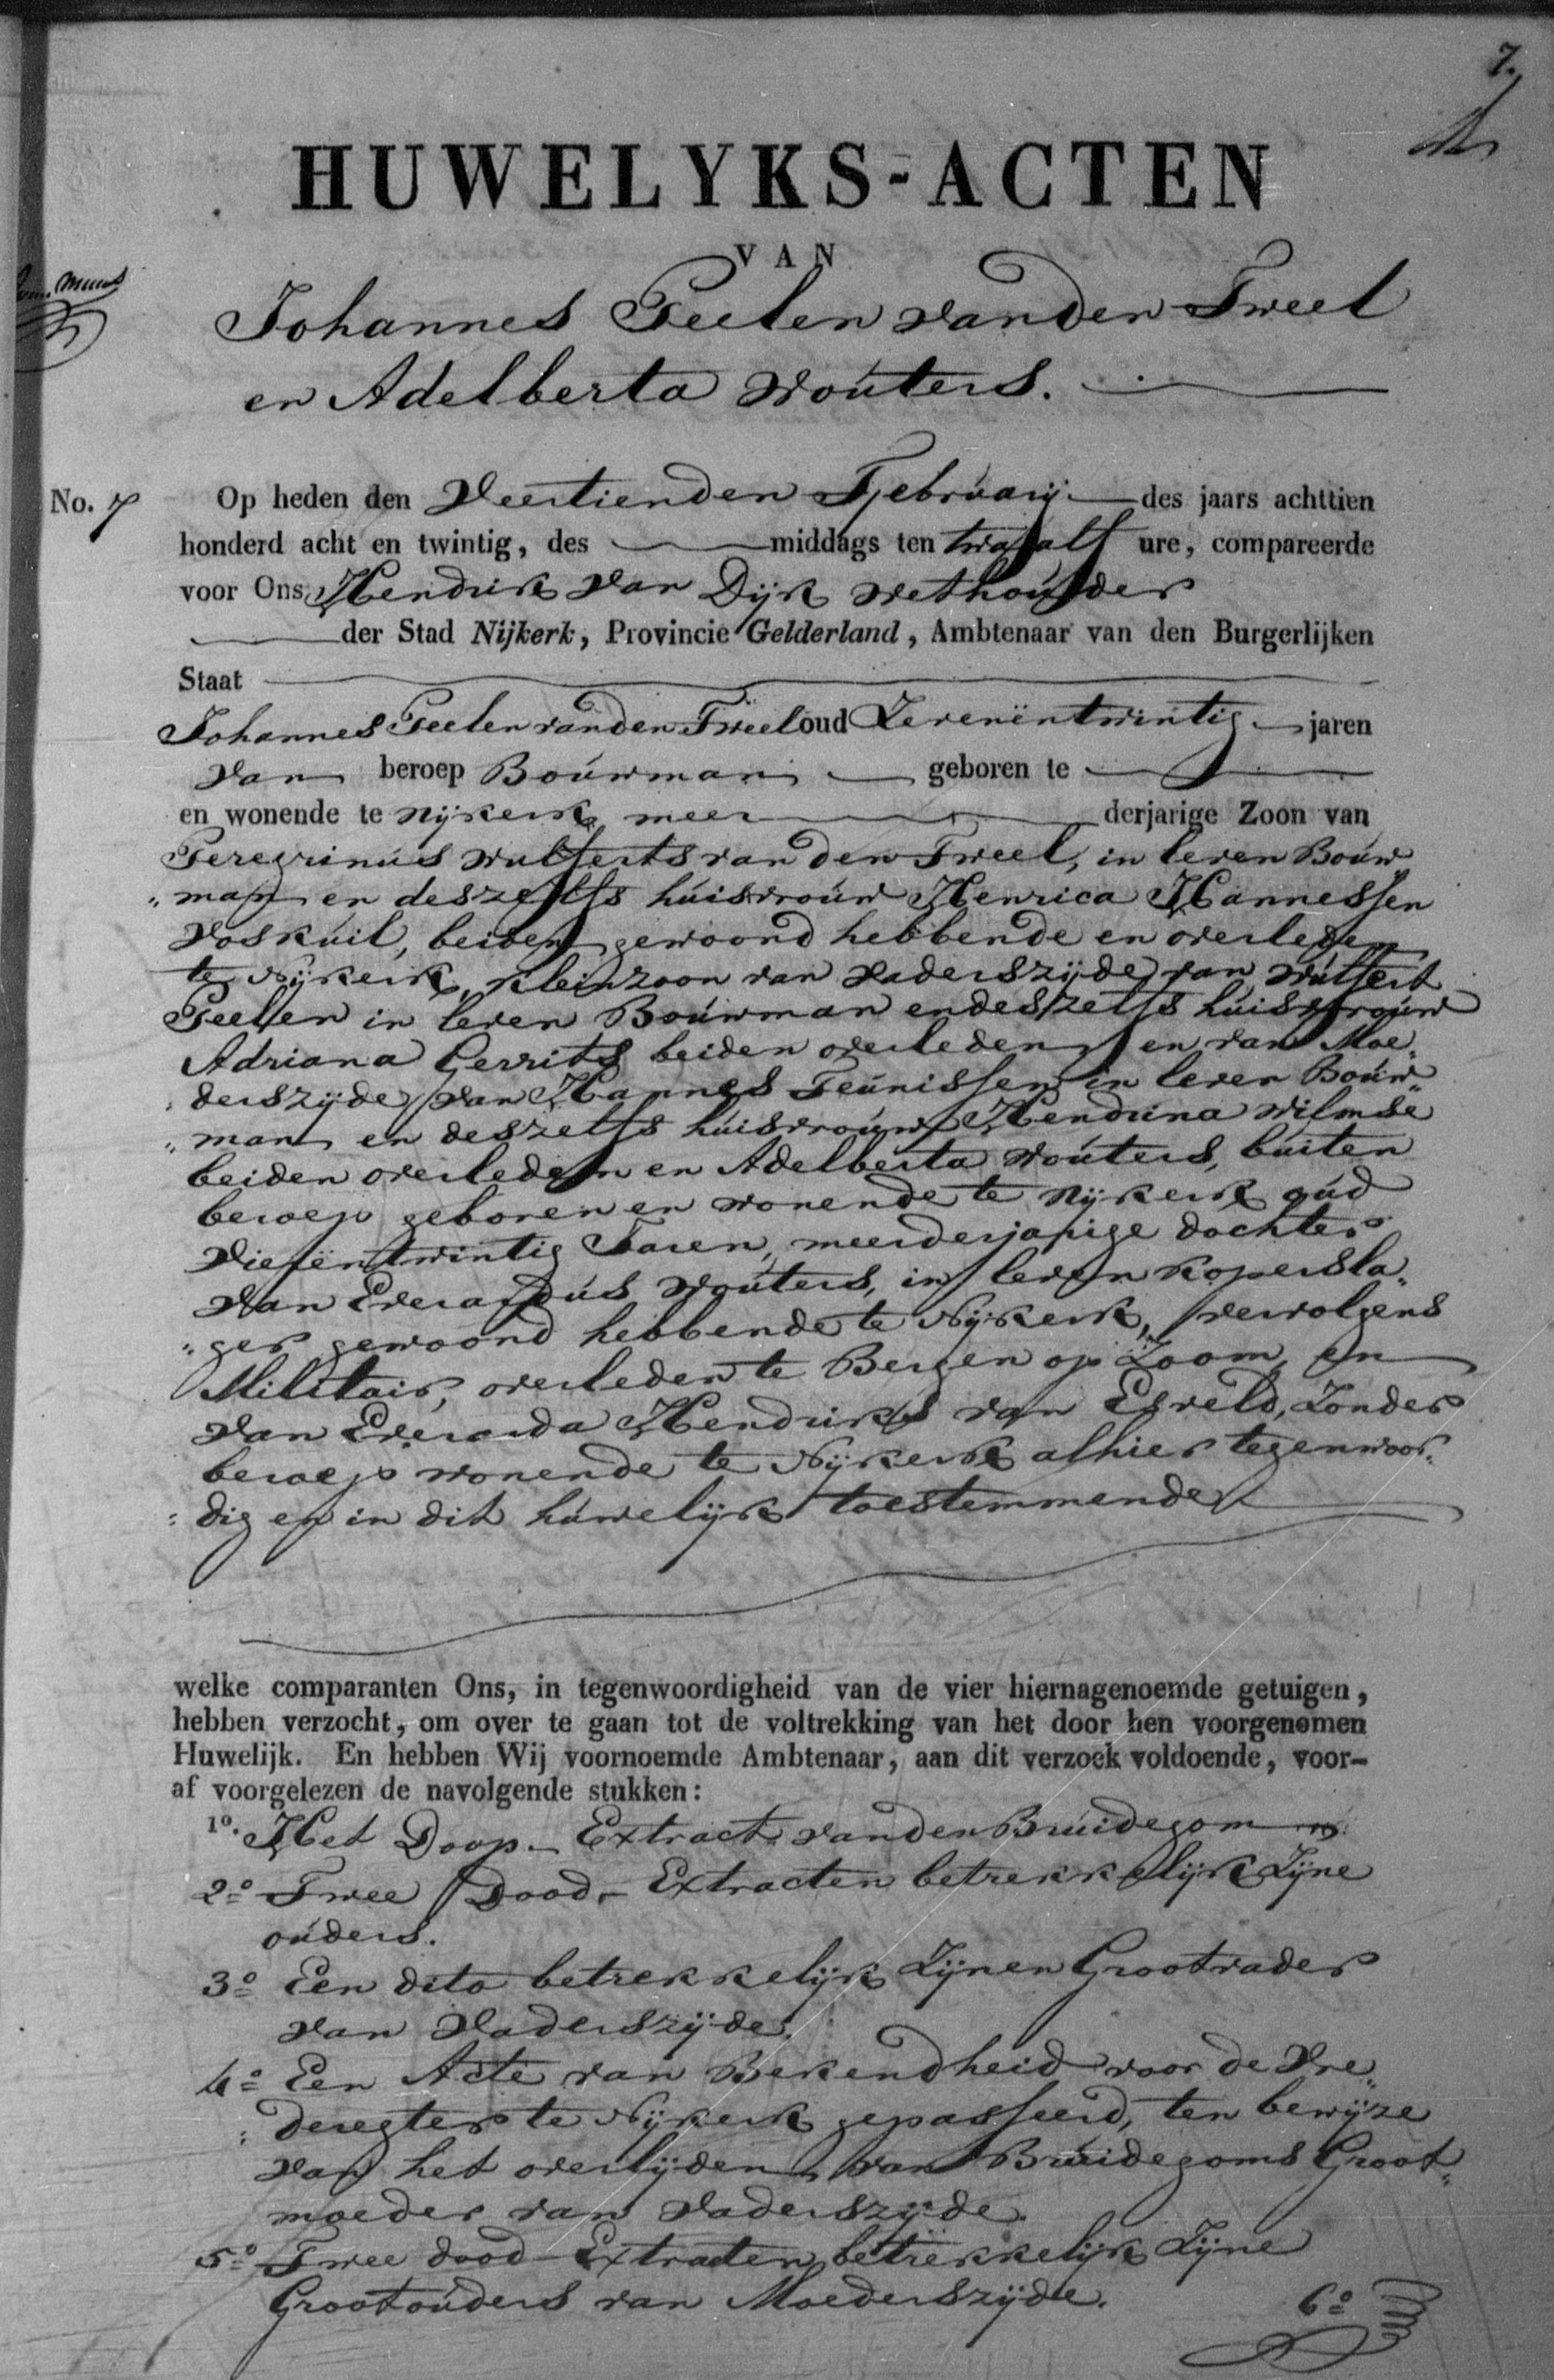 7.
HUWELYKS-ACTEN
VAN
Johannes Peelen van den Tweel
en Adelberta Wouters.
No. 7 Op heden den Veertienden Februarij des jaars achttien
honderd acht en twintig, des middags ten twaalf ure, compareerde
voor Ons Hendrik van Dijk Wethouder
der Stad Nijkerk, Provincie Gelderland, Ambtenaar van den Burgerlijken
Staat
Johannes Peelen van den Tweel oud Zevenëntwintig jaren
van beroep Bouwman geboren te
en wonende te Nijkerk meer derjarige Zoon van
Peregrinus Wulferts van den Tweel, in leven Bouw
"man en deszelfs huisvrouw Henrica Hannessen
Voskuil, beiden gewoond hebbende en overleden
te Nijkerk, kleinzoon van Vaderszijde van Wulfert
Peelen in leven Bouwman en deszelfs huisvrouw
Adriana Gerrits beiden overleden en van Moe„
derszijde van Hannes Teunissen in leven Bouw„
„man en deszelfs huisvrouw Hendrina Wilmse
beiden overleden en Adelberta Wouters, buiten
beroep geboren en wonende te Nijkerk oud
Vierëntwintig Jaren, meerderjarige dochter
van Everardus Wouters, in leven kopersla„
„ger gewoond hebbende te Nijkerk, vervolgens
Militair, overleden te Bergen op Zoom, en
van Everarda Hendriks van Esveld, Zonder
beroep wonende te Nijkerk alhier tegenwoor„
: dig en in dit huwelijk toestemmende
welke comparanten Ons, in tegenwoordigheid van de vier hiernagenoemde getuigen,
hebben verzocht, om over te gaan tot de voltrekking van het door hen voorgenomen
Huwelijk. En hebben Wij voornoemde Ambtenaar, aan dit verzoek voldoende, voor-
af voorgelezen de navolgende stukken:
1o. Het Doop-Extract van den Bruidegom
2o Twee Dood-Extracten betrekkelijk Zijne
ouders.
3o Een dito betrekkelijk Zijnen Grootvader
van Vaderszijde.
4o Een Acte van Bekendheid voor de Vre„
: deregter te Nijkerk gepasseerd, ten bewijze
van het overlijden van Bruidegoms Groot„
moeder van Vaderszijde.
5o Twee dood-Extracten betrekkelijk Zijne
Grootouders van Moederszijde.
6o